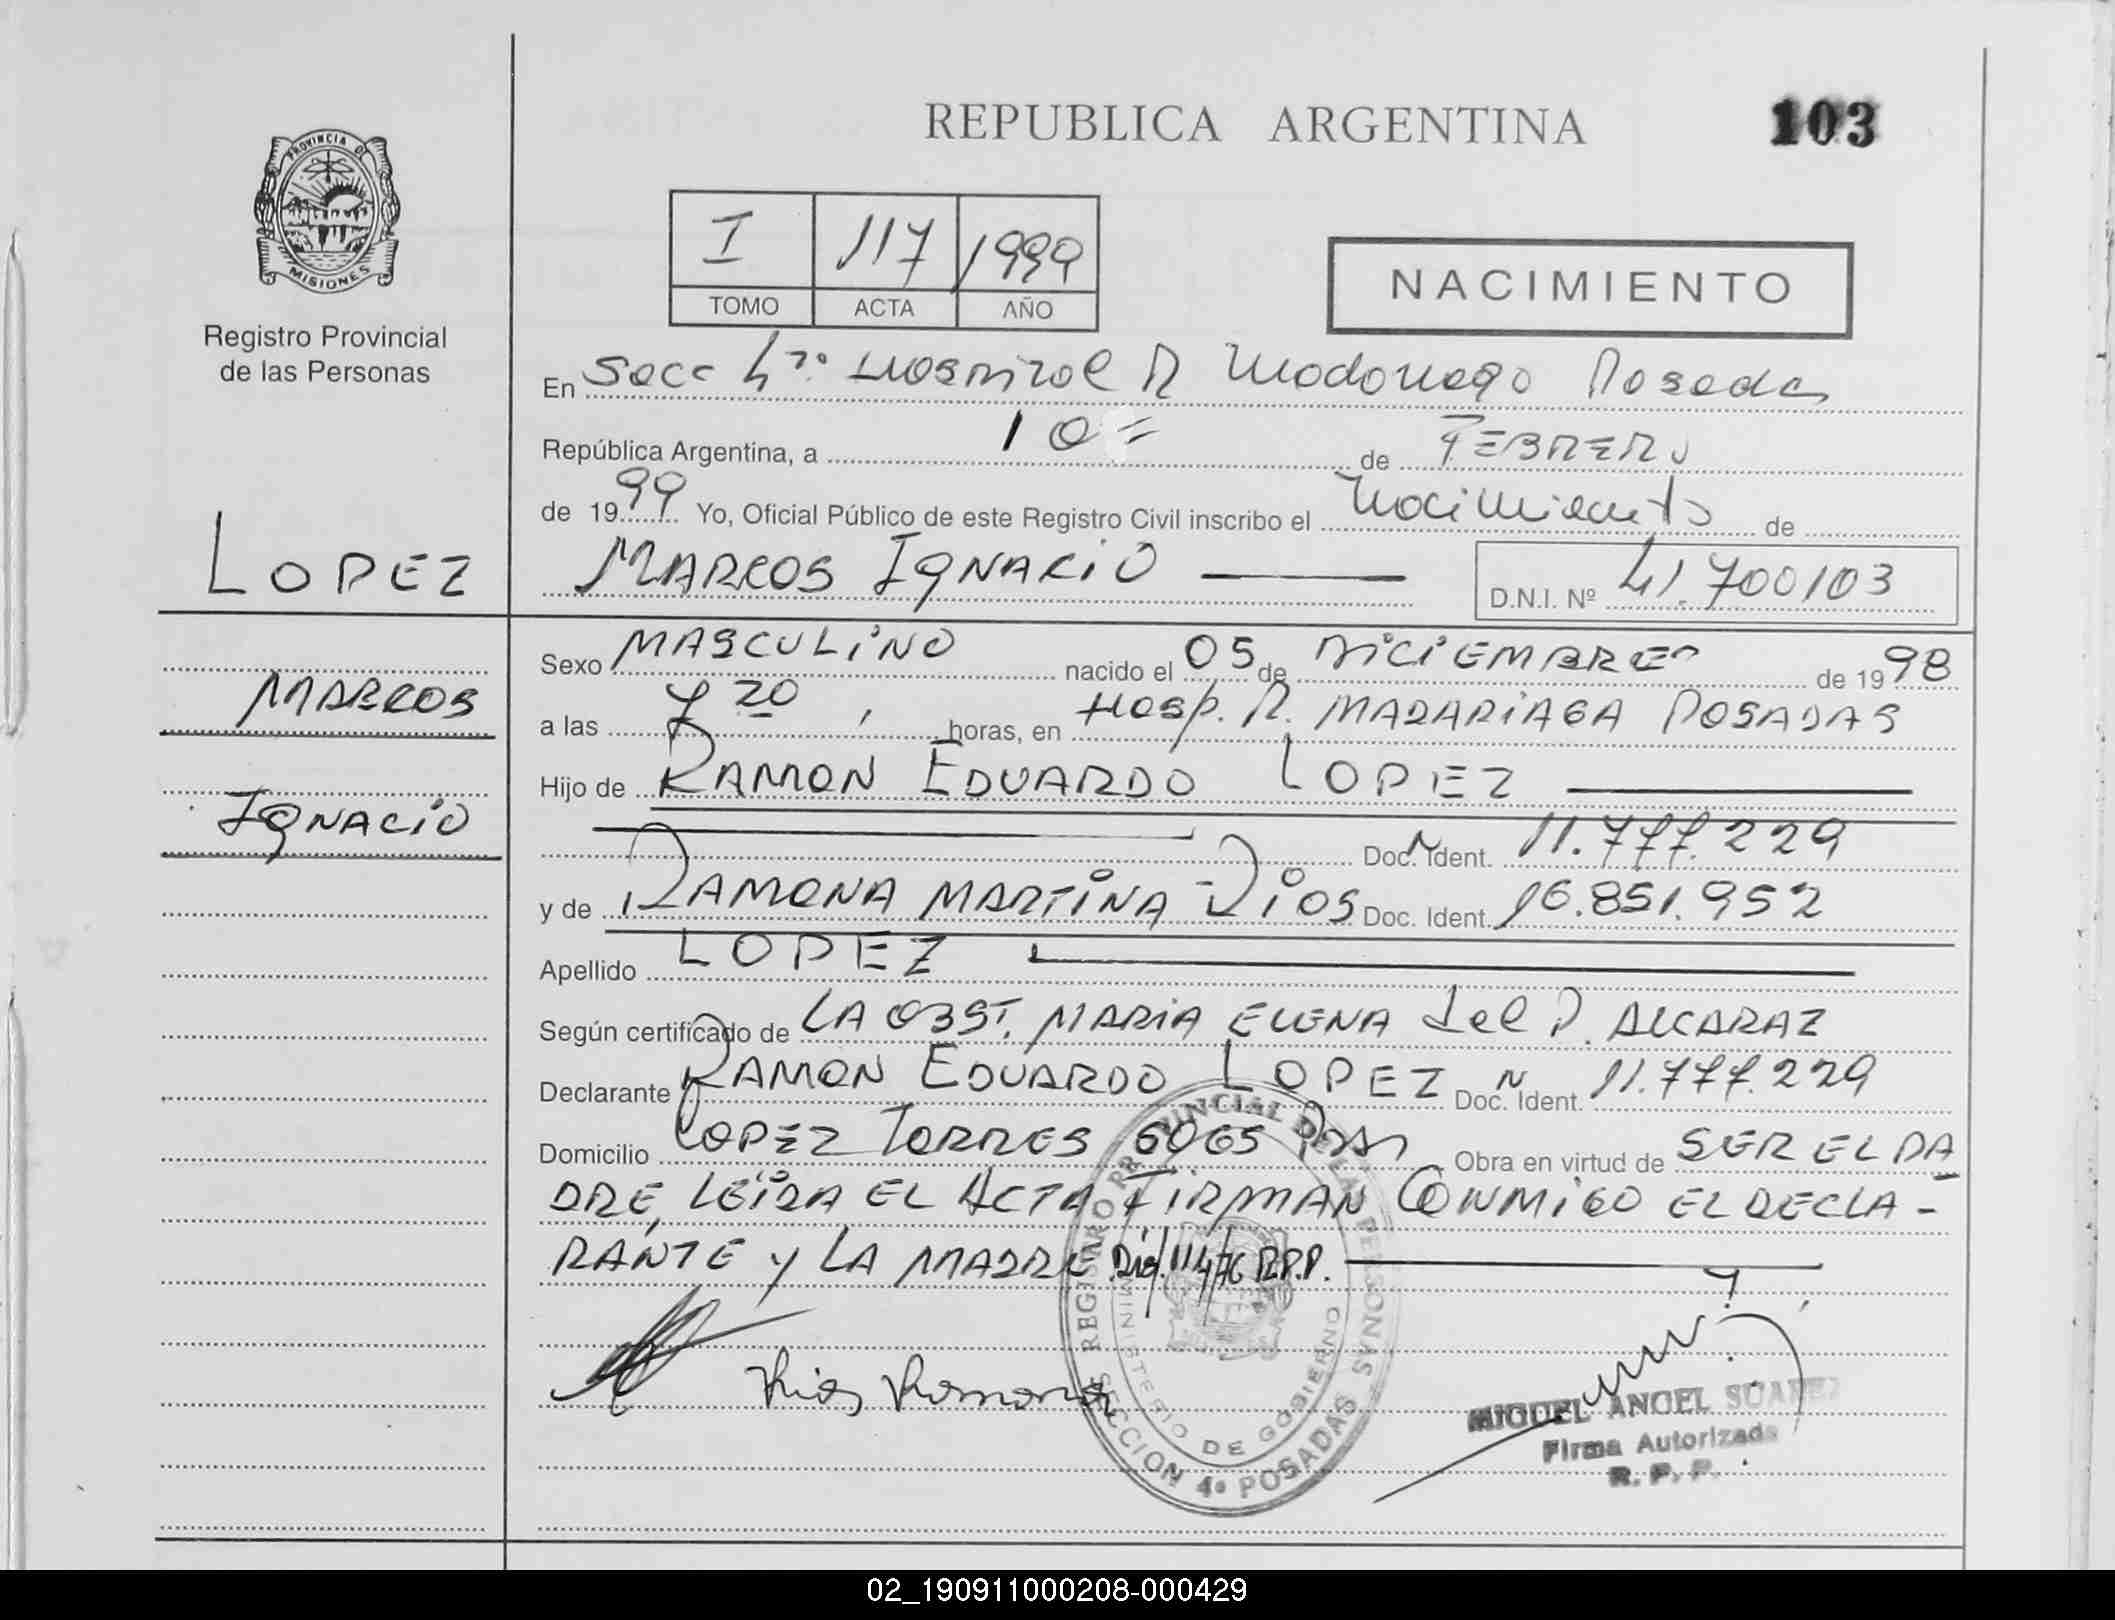 REPUBLICA ARGENTINA
103
PROVINCIA DE
MISIONES
Registro Provincial
de las Personas
I 117 1999
TOMO ACTA AÑO
NACIMIENTO
En Secc 4ta. Hospital R Madariaga Posadas
República Argentina, a 10= de FEBRERO
de 1999 Yo, Oficial Público de este Registro Civil inscribo el Nacimiento de
LOPEZ
MARCOS IGNACIO
D.N.I. Nº 41.700103
MARCOS
IGNACIO
Sexo MASCULINO nacido el 05 de DICIEMBRE de 1998
a las 7 20 horas, en Hosp. R. MADARIAGA POSADAS
Hijo de RAMON EDUARDO LOPEZ
Doc. Ident. 11.777.229
y de RAMONA MARTINA RIOS Doc. Ident. 16.851.952
Apellido LOPEZ
Según certificado de LA OBST. MARIA ELENA del P. ALCARAZ
Declarante RAMON EDUARDO LOPEZ Doc. Ident. 11.777.229
Domicilio LOPEZ TORRES 6065 Obra en virtud de SER EL PA
DRE, LEIDA EL ACTA FIRMAN CONMIGO EL DECLA-
RANTE y LA MADRE. R.P.P.
Rios Ramona
REGISTRO PROVINCIAL DE LAS PERSONAS
MINISTERIO DE GOBIERNO
SECCION 4ª POSADAS
MIGUEL ANGEL SUAREZ
Firma Autorizada
R. P. P.
02_190911000208-000429